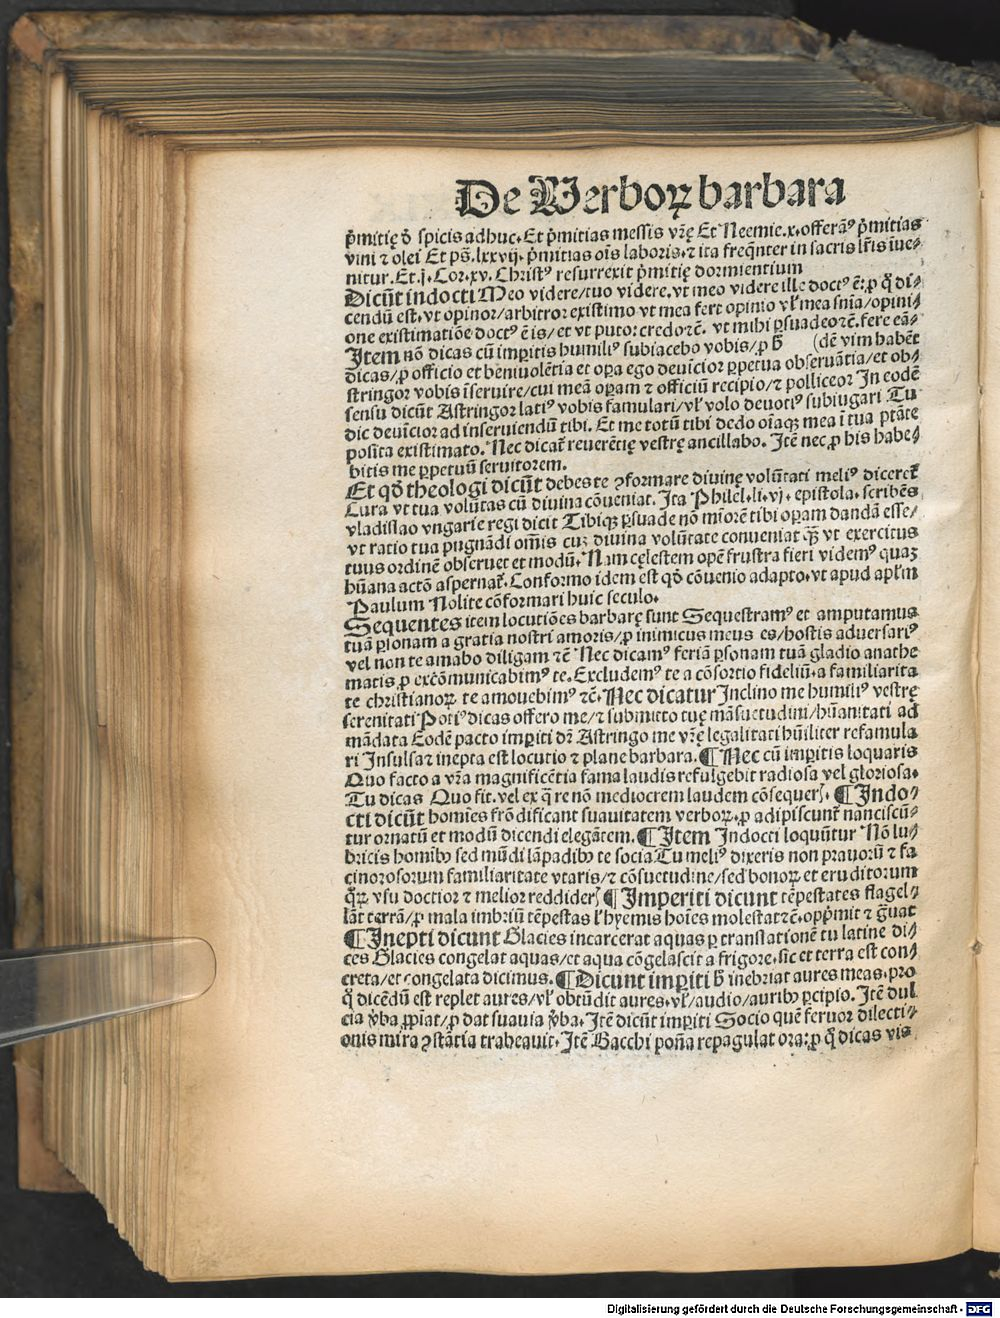 De Verboꝝ barbara
p̄mitię d̄ spicis adhuc. Et p̄mitias messis vr̄ę Et Neemie.x. offeramꝰ p̄mitias
vini ⁊ olei Et pš. lxxvij. p̄mitias oīs laboris. ⁊ ita freq̄nter in sacris lr̄is īue⸗
nitur. Et .j. Cor. xv. Christꝰ resurrexit p̄mitię dormientium
Dicūt indocti Meo videre/tuo videre. vt meo videre ille doctꝰ ē: ꝓ q̄ di⸗
cendū est. vt opinor/arbitror existimo vt mea fert opinio vł mea snīa/opini⸗
one existimatiōe doctꝰ ē is/ et vt puto: credo ⁊c̄. vt mihi ꝑsuadeo ⁊c̄. fere eā⸗
Item nō dicas cū imꝑitis humiliꝰ subiacebo vobis/ꝓ h̄ (dē vim habēt
dicas/ꝓ officio et beniuolētia et oꝑa ego deuīcior ꝑpetua obseruātia/et ob⸗
stringor vobis īseruire/cui meā oꝑam ⁊ officiū recipio/⁊ polliceor In eodē
sensu dicūt Astringor latiꝰ vobis famulari/vł volo deuotiꝰ subiugari Tu
dic deuīcior ad inseruiendū tibi. Et me totū tibi dedo oīaqꝫ mea ī tua ptāte
posita existimato. Nec dicat̄ reuerētię vestrę ancillabo. Itē nec ꝓ his habe⸗
bitis me ꝑpetuū seruitorem.
Et qd̄ theologi dicūt debes te ꝯformare diuinę volūtati meliꝰ diceret̄
Cura vt tua volūtas cū diuina cōueniat. Ita Philel. li. vj. epistola. scribēs
vladislao vngarie regi dicit Tibiqꝫ ꝑsuade nō mīorē tibi oꝑam dandā esse/
vt ratio tua pugnādi om̄is cuꝫ diuina volūtate conueniat qꝫ̄ vt exercitus
tuus ordinē obseruet et modū. Nam cęlestem opē frustra fieri videmꝰ quaꝫ
hūana actō aspernat̄. Conformo idem est qd̄ cōuenio adapto. vt apud apłm
Paulum Nolite cōformari huic seculo.
Sequentes item locutiōes barbarę sunt Sequestramꝰ et amputamus
tuā ꝑsonam a gratia nostri amoris/ꝓ inimicus meus es/hostis aduersariꝰ
vel non te amabo diligam ⁊c̄ Nec dicamꝰ feriā ꝑsonam tuā gladio anathe
matis ꝓ excōmunicabimꝰ te. Excludemꝰ te a cōsortio fideliū. a familiarita
te christianoꝝ te amouebimꝰ ⁊c̄. Nec dicatur Inclino me humiliꝰ vestrę
serenitati Potiꝰ dicas offero me/⁊ submitto tuę māsuetudini/hūanitati ad
mādata Eodē pacto imꝑiti dr̄ Astringo me vr̄ę legalitati hūiliter refamula
ri Insulsa ⁊ inepta est locutio ⁊ plane barbara. ¶ Nec cū imꝑitis loquaris
Quo facto a vr̄a magnificētia fama laudis refulgebit radiosa vel gloriosa.
Tu dicas Quo fit. vel ex q̄ re nō mediocrem laudem cōsequer̄. ¶ Indo⸗
cti dicūt homīes frōdificant suauitatem verboꝝ. ꝓ adipiscunt̄ nanciscū⸗
tur ornatū et modū dicendi elegātem. ¶ Item Indocti loquūtur Nō lu⸗
bricis homībꝰ sed mūdi lāpadibꝰ te socia Tu meliꝰ dixeris non prauorū ⁊ fa
cinorosorum familiaritate vtaris/⁊ cōsuetudine/sed bonoꝝ et eruditorum
qꝝ̄ vsu doctior ⁊ melior reddider̄ ¶ Imperiti dicunt tēpestates flagel⸗
lāt terrā/ꝓ mala imbriū tēpestas ł hyemis hoīes molestat ⁊c̄. opp̄mit ⁊ ḡuat
¶ Inepti dicunt Glacies incarcerat aquas ꝑ translationē tu latine di⸗
ces Glacies congelat aquas/et aqua cōgelascit a frigore. sic et terra est con
creta/et congelata dicimus. ¶ Dicunt imꝑiti h̄ inebriat aures meas. pro
q̄ dicēdū est replet aures/vł obtūdit aures. vł/audio/auribꝰ ꝑcipio. Itē dul
cia v̄ba ꝓpīat/ꝓ dat suauia v̄ba. Itē dicūt imꝑiti Socio quē feruor dilecti⸗
onis mira ꝯstātia trabeauit. Itē Bacchi poña repagulat ora: ꝓ q̄ dicas vis
Digitalisierung gefördert durch die Deutsche Forschungsgemeinschaft - DFG